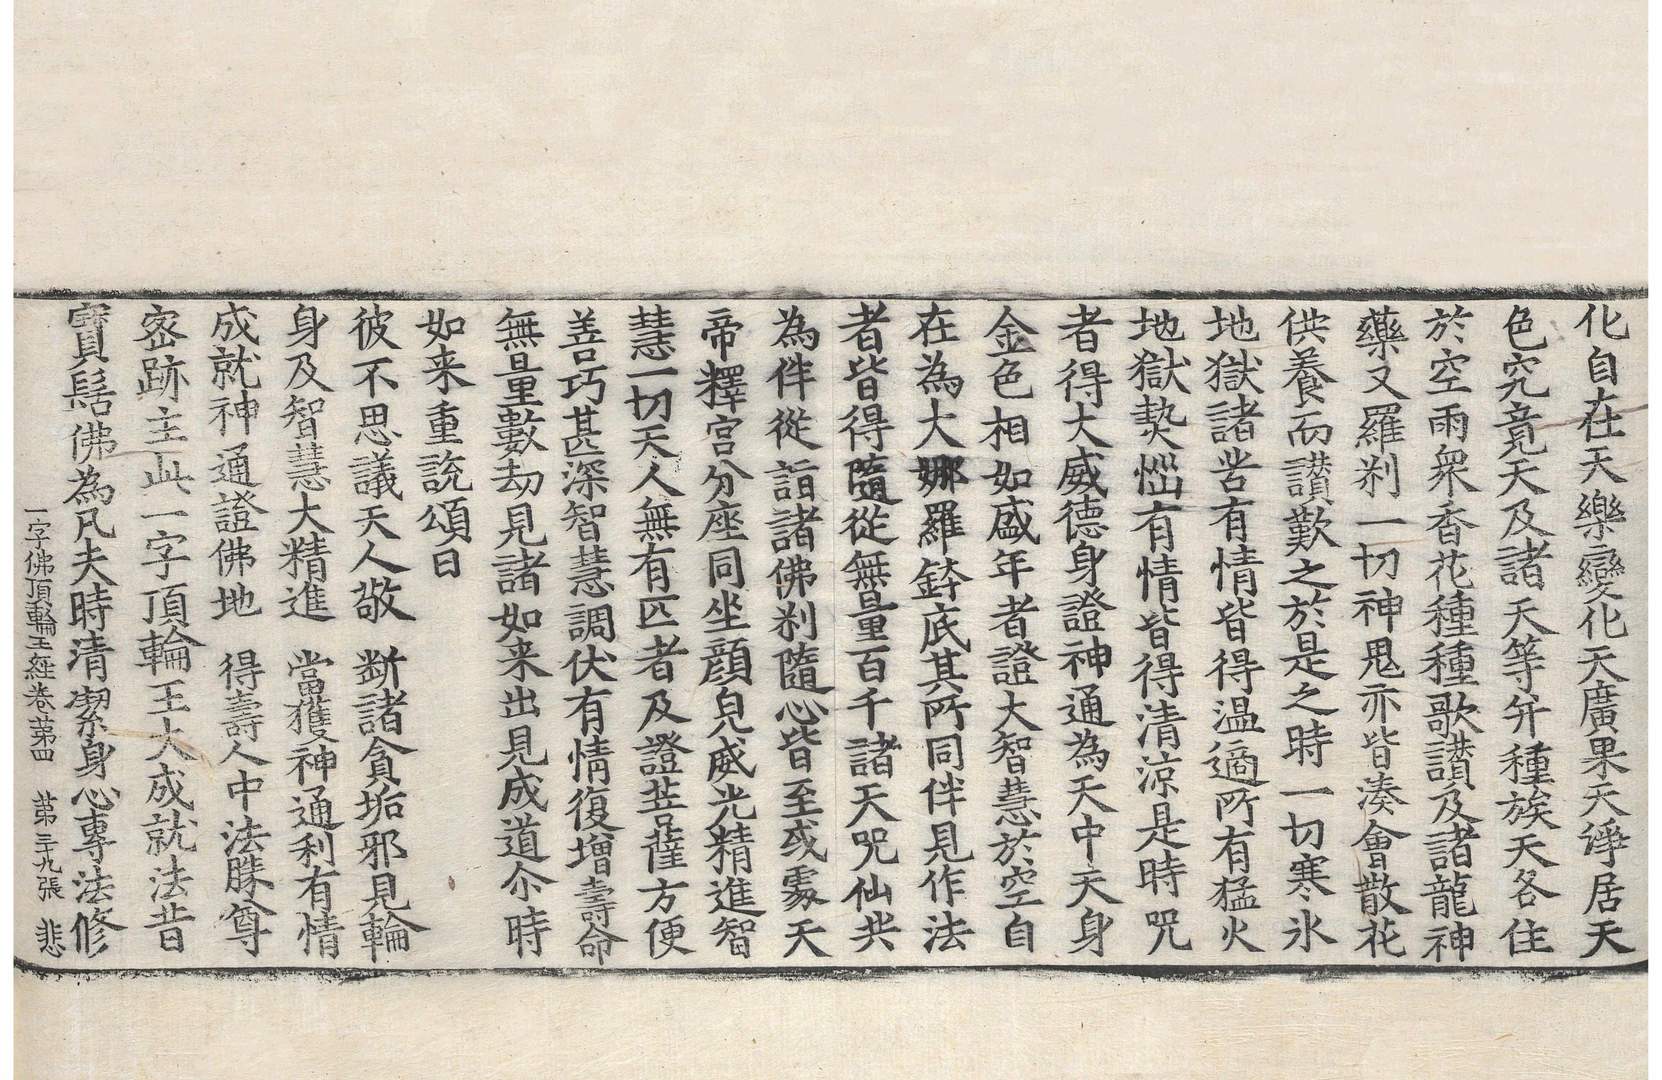 化自在天樂變化天廣果天淨居天
色究竟天及諸天等并種族天各住
於空雨衆香花種種歌讃及諸龍神
藥叉羅刹一切神鬼亦皆湊會散花
供養而讃歎之於是之時一切寒氷
地獄諸苦有情皆得温適所有猛火
地獄𤍠惱有情皆得清涼是時呪
者得大威德身證神通為天中天身
金色相如盛年者證大智慧於空自
在為大娜羅鉢底其所同伴見作法
者皆得隨從無量百千諸天呪仙共
為伴從詣諸佛刹隨心皆至或處天
帝釋宮分座同坐顔皃威光精進智
慧一切天人無有匹者及證菩薩方便
善巧甚深智慧調伏有情復增壽命
無量數劫見諸如来出見成道尒時
如来重說頌曰
彼不思議天人敬　斷諸貪垢邪見輪
身及智慧大精進　當獲神通利有情
成就神通證佛地　得壽人中法勝尊
宻跡主此一字頂輪王大成就法昔
寶髻佛為凡夫時清潔身心專法修
一字佛頂輪王經卷第四　第三十九張　悲